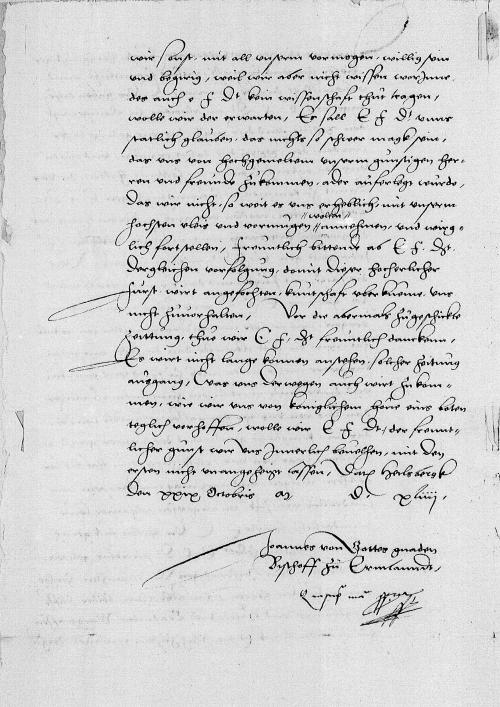 wir sonst mit all unserm vormogen, willig sein
und begirig, weil wir aber nicht wissen, worinne
des auch e f dt kein wissenschaft thut tragen,
wolle wir der erwarten, Es sall E f dt unns
statlich glauben, das nichts so schwer magk sein,
das uns von hochgemeltem unserm gunstigen her-
ren und freunde zukommen, ader auferlegt wurde,
das wir nicht, so weit es uns erheblich, mit unserm
hochsten vleis und vormugen wolten annehmen, und wirg-
lich fortstellen, freuntlich bittende ab E f dt
dergleichen vorfolgung, domit dieser hocherlicher
furst wirt angefochten, kuntschaft uberkueme, uns
nicht zuvorhalten, Vor die abermals zugeschickte
zeittung, thue wir E f dt freuntlich danckenn,
Es wirt nicht lange konnen anstehen, solcher zeitung
ausgang, Was uns derwegen auch wirt zukom-
men, wie wir uns von koniglichem hove eins boten
teglich vorhoffen, wolle wir E f dt, der freunt-
licher gunst wir uns innerlich bevelhen, mit den
ersten nicht unangezeigt lassen, Datum Heilsbergk
den xxix Octobris d xliiii
Joannes von Gottes gnaden
Bischoff zu Ermlanndt